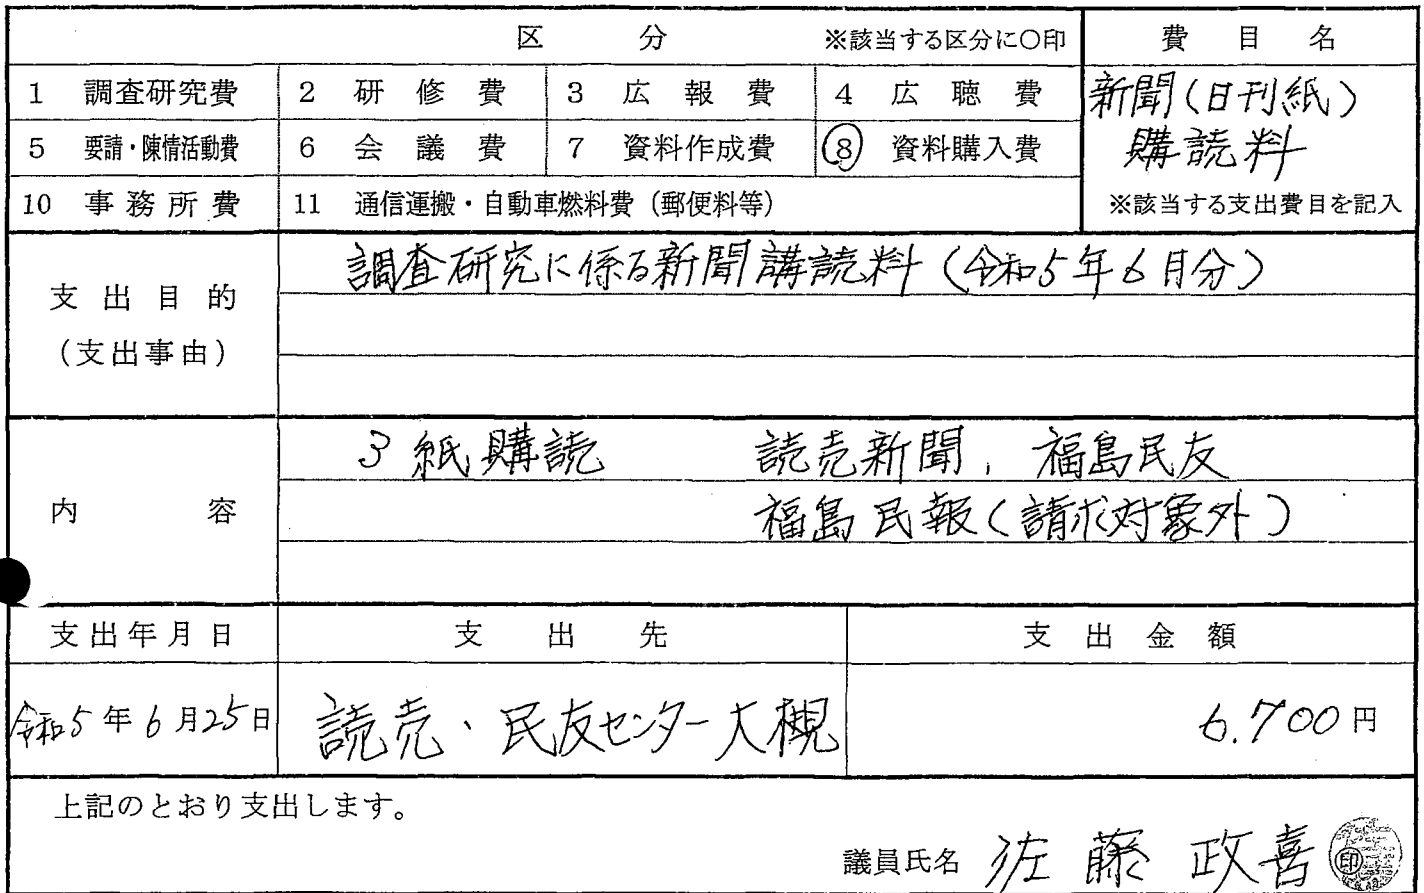 区 分 ※該当する区分に○印 費 目 名
1 調査研究費 2 研 修 費 3 広 報 費 4 広 聴 費 新聞(日刊紙)
5 要請・陳情活動費 6 会 議 費 7 資料作成費 ⑧ 資料購入費 購読料
10 事務所費 11 通信運搬・自動車燃料費(郵便料等) ※該当する支出費目を記入
支出目的
(支出事由)
調査研究に係る新聞講読料(令和5年6月分)
内 容
3紙購読 読売新聞、福島民友
福島民報(請求対象外)
支出年月日 支 出 先 支 出 金 額
令和5年6月25日 読売、民友センター大槻 6.700円
上記のとおり支出します。
議員氏名 佐藤 政喜 印